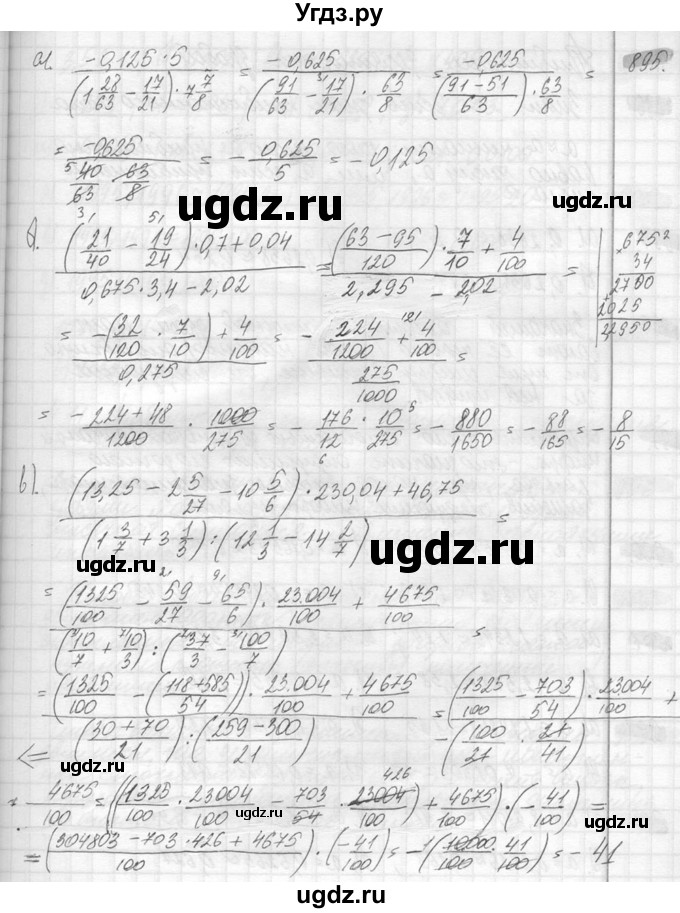 Угдз.ру
895.
а). (-0,125·5)/((1 28/63 - 17/21)·7 7/8) = (-0,625)/((91/63 - 17/21)·63/8) = (-0,625)/(((91-51)/63)·63/8) =
= (-0,625)/(40/63 · 63/8) = -0,625/5 = -0,125
ugdz.ru
ugdz.ru
б). ((21/40 - 19/24)·0,7+0,04)/(0,675·3,4-2,02) = (((63-95)/120)·7/10 + 4/100)/(2,295 - 2,02) =
675
34
2700
2025
22950
= (-(32/120 · 7/10) + 4/100)/(0,275) = (-224/1200 + 4/100)/(275/1000) =
= (-224+48)/1200 · 1000/275 = -176/12 · 10/275 = -880/1650 = -88/165 = -8/15
ugdz.ru
ugdz.ru
в). ((13,25 - 2 5/27 - 10 5/6)·230,04+46,75)/((1 3/7 + 3 1/3):(12 1/3 - 14 2/7)) =
ugdz.ru
ugdz.ru
= ((1325/100 - 59/27 - 65/6)·23.004/100 + 4675/100)/((10/7 + 10/3):(37/3 - 100/7)) =
= ((1325/100 - (118+585)/54)·23.004/100 + 4675/100)/(((30+70)/21):((259-300)/21)) = ((1325/100 - 703/54)·23.004/100 +)/(-(100/21 · 21/41))
ugdz.ru
+ 4675/100 = ((1325/100 · 23004/100 - 703/54 · 23004/100) + 4675/100)·(-41/100) =
426
ugdz.ru
ugdz.ru
= ((304803 - 703·426 + 4675)/100)·(-41/100) = -1(10000/100 · 41/100) = -41
ugdz.ru